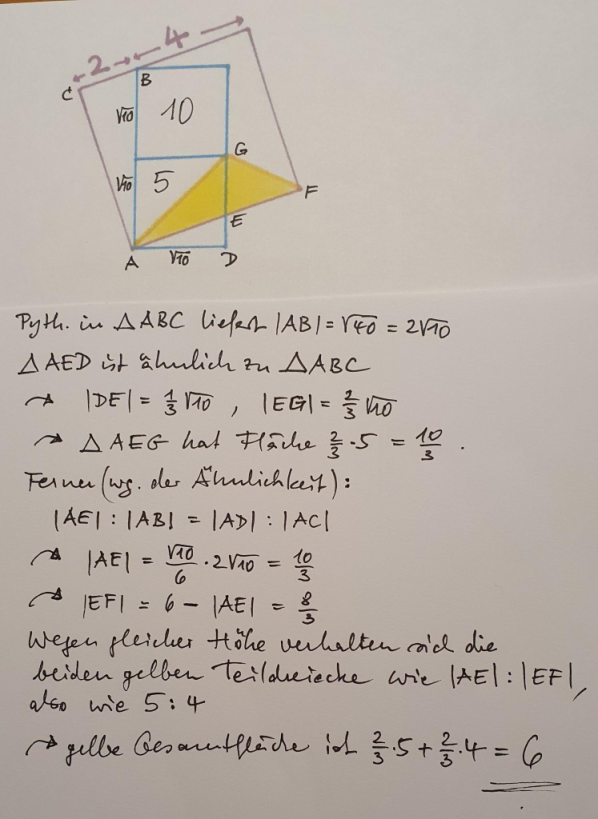 2 4
C B
√10 10
G
√10 5
F
E
A √10 D
Pyth. in △ABC liefert |AB| = √40 = 2√10
△AED ist ähnlich zu △ABC
⤳ |DE| = 1/3 √10 , |EG| = 2/3 √10
⤳ △AEG hat Fläche 2/3 · 5 = 10/3 .
Ferner (wg. der Ähnlichkeit):
|AE| : |AB| = |AD| : |AC|
⤳ |AE| = √10/6 · 2√10 = 10/3
⤳ |EF| = 6 − |AE| = 8/3
Wegen gleicher Höhe verhalten sich die
beiden gelben Teildreiecke wie |AE| : |EF|,
also wie 5 : 4
⤳ gelbe Gesamtfläche ist 2/3 · 5 + 2/3 · 4 = 6